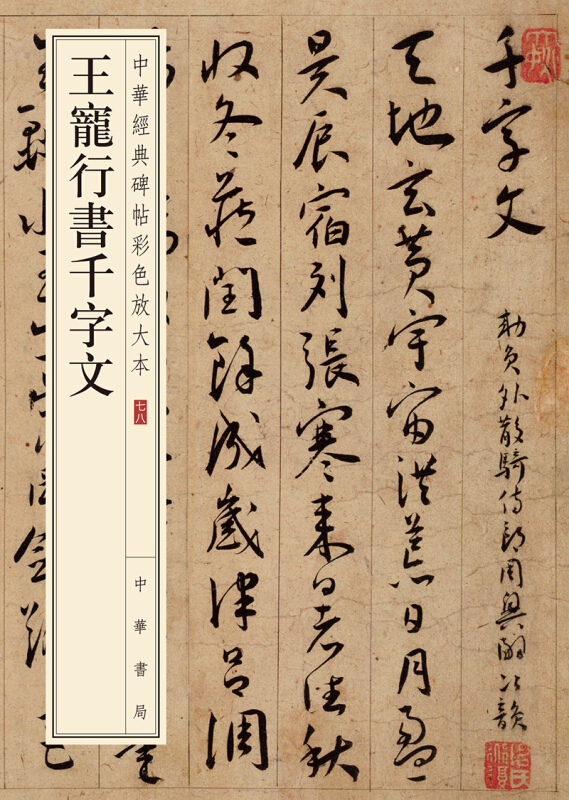 千字文
勅員外散騎侍郎周興嗣次韻
天地玄黄宇宙洪荒日月盈
昃辰宿列張寒来暑往秋
收冬藏閏餘成歲律吕調
中華經典碑帖彩色放大本
七八
中華書局
王寵行書千字文